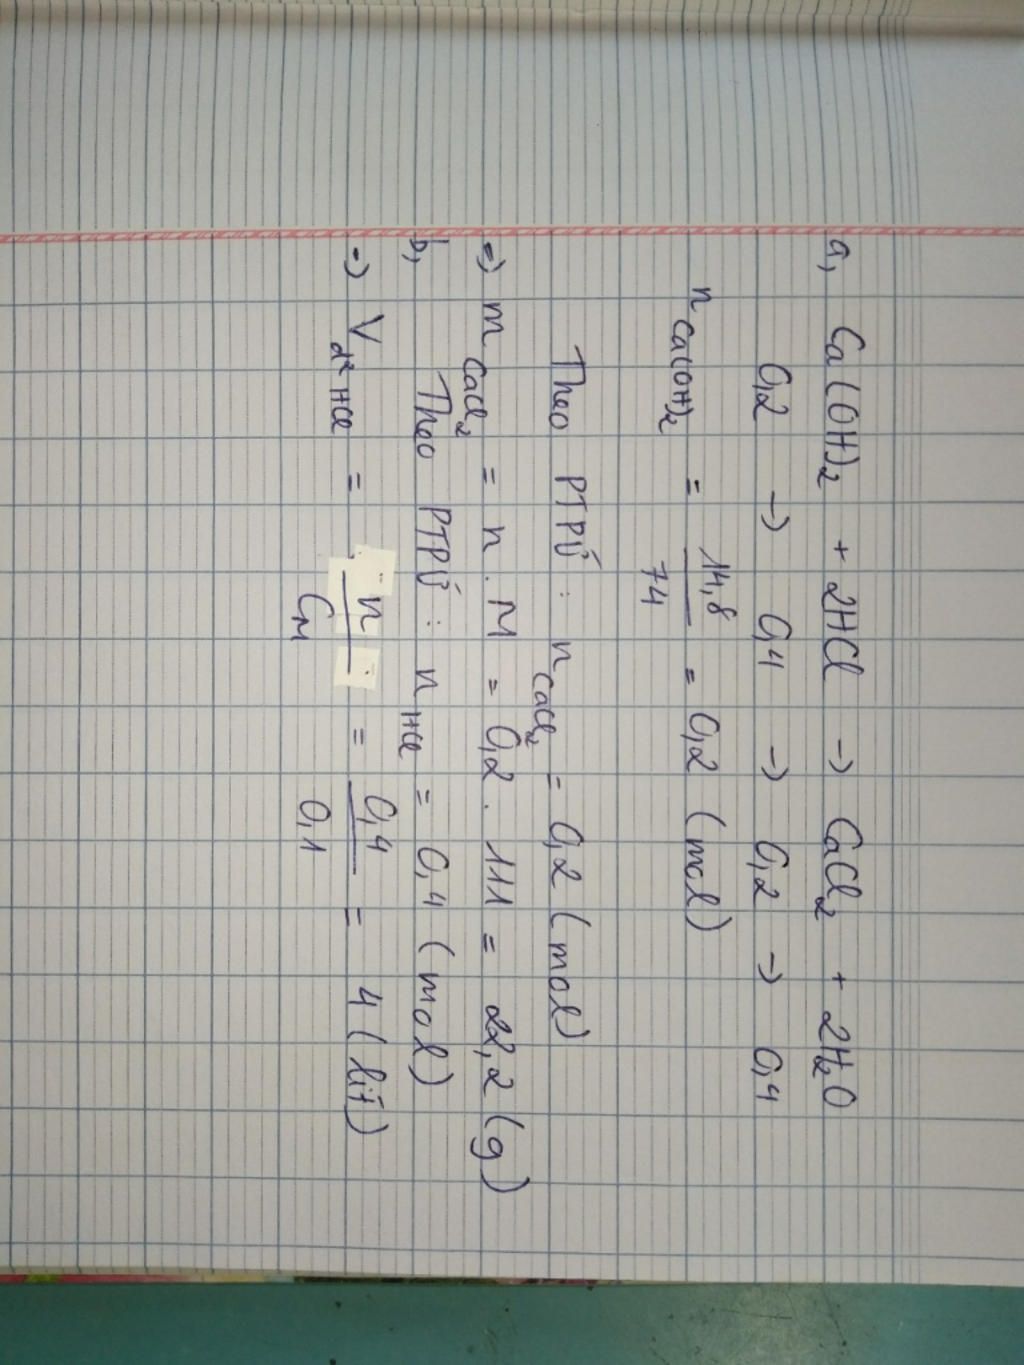 a, Ca(OH)2 + 2HCl → CaCl2 + 2H2O
0,2 → 0,4 → 0,2 → 0,4
nCa(OH)2 = 14,8/74 = 0,2 (mol)
Theo PTPƯ : nCaCl2 = 0,2 (mol)
=) mCaCl2 = n . M = 0,2 . 111 = 22,2 (g)
b, Theo PTPƯ : nHCl = 0,4 (mol)
=) Vd² HCl = n/CM = 0,4/0,1 = 4 (lít)